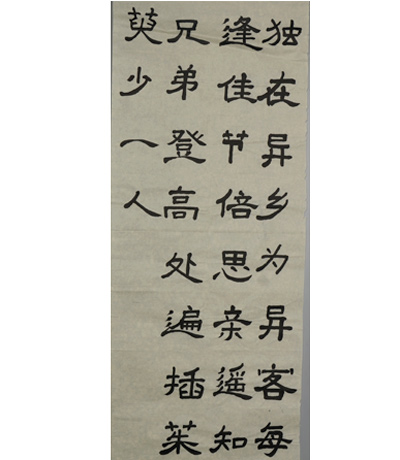 独在异乡为异客每
逢佳节倍思亲遥知
兄弟登高处遍插茱
萸少一人